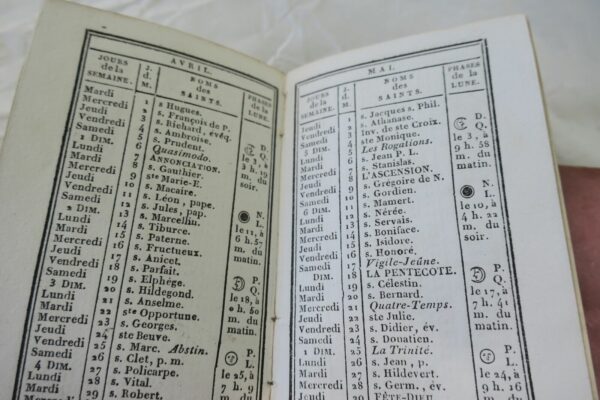 AVRIL.
JOURS de la SEMAINE.
J. d. M.
NOMS des SAINTS.
PHASES de la LUNE.
Mardi 1 s. Hugues.
Mercredi 2 s. François de P.
Jeudi 3 s. Richard, évêq.
Vendredi 4 s. Ambroise.
Samedi 5 s. Prudent.
1 DIM. 6 Quasimodo.
Lundi 7 ANNONCIATION.
Mardi 8 s. Gauthier.
Mercredi 9 ste Marie-E.
Jeudi 10 s. Macaire.
Vendredi 11 s. Léon, pape.
Samedi 12 s. Jules, pap.
2 DIM. 13 s. Marcellin.
Lundi 14 s. Tiburce.
Mardi 15 s. Paterne.
Mercredi 16 s. Fructueux.
Jeudi 17 s. Anicet.
Vendredi 18 s. Parfait.
Samedi 19 s. Elphège.
3 DIM. 20 s. Hildegond.
Lundi 21 s. Anselme.
Mardi 22 ste Opportune.
Mercredi 23 s. Georges.
Jeudi 24 ste Beuve.
Vendredi 25 s. Marc. Abstin.
Samedi 26 s. Clet, p. m.
4 DIM. 27 s. Policarpe.
Lundi 28 s. Vital.
Mardi 29 s. Robert.
D.
Q.
le 3, à
3 h. 19
m. du
matin.
N.
L.
le 11, à
6 h. 57
m. du
matin.
P.
Q.
le 18, à
0 h. 60
m. du
matin.
P.
L.
le 25, à
MAI.
JOURS de la SEMAINE.
J. d. M.
NOMS des SAINTS.
PHASES de la LUNE.
Jeudi 1 s. Jacques s. Phil.
Vendredi 2 s. Athanase.
Samedi 3 Inv. de ste Croix.
5 DIM. 4 ste Monique.
Lundi 5 Les Rogations.
Mardi 6 s. Jean P. L.
Mercredi 7 s. Stanislas.
Jeudi 8 L'ASCENSION.
Vendredi 9 s. Grégoire de N.
Samedi 10 s. Gordien.
6 DIM. 11 s. Mamert.
Lundi 12 s. Nérée.
Mardi 13 s. Servais.
Mercredi 14 s. Boniface.
Jeudi 15 s. Isidore.
Vendredi 16 s. Honoré.
Samedi 17 Vigile-Jeûne.
DIM. 18 LA PENTECOTE.
Lundi 19 s. Célestin.
Mardi 20 s. Bernard.
Mercredi 21 Quatre-Temps.
Jeudi 22 ste Julie.
Vendredi 23 s. Didier, év.
Samedi 24 s. Donatien.
1 DIM. 25 La Trinité.
Lundi 26 s. Jean, p.
Mardi 27 s. Hildevert.
Mercredi 28 s. Germ., év.
Jeudi 29 FÊTE-DIEU
D.
Q.
le 3, à
9 h. 58
m. du
matin.
N.
L.
le 10, à
4 h. 22
m. du
soir.
P.
Q.
le 17, à
7 h. 41
m. du
matin.
P.
L.
le 24, à
m. du
soir.